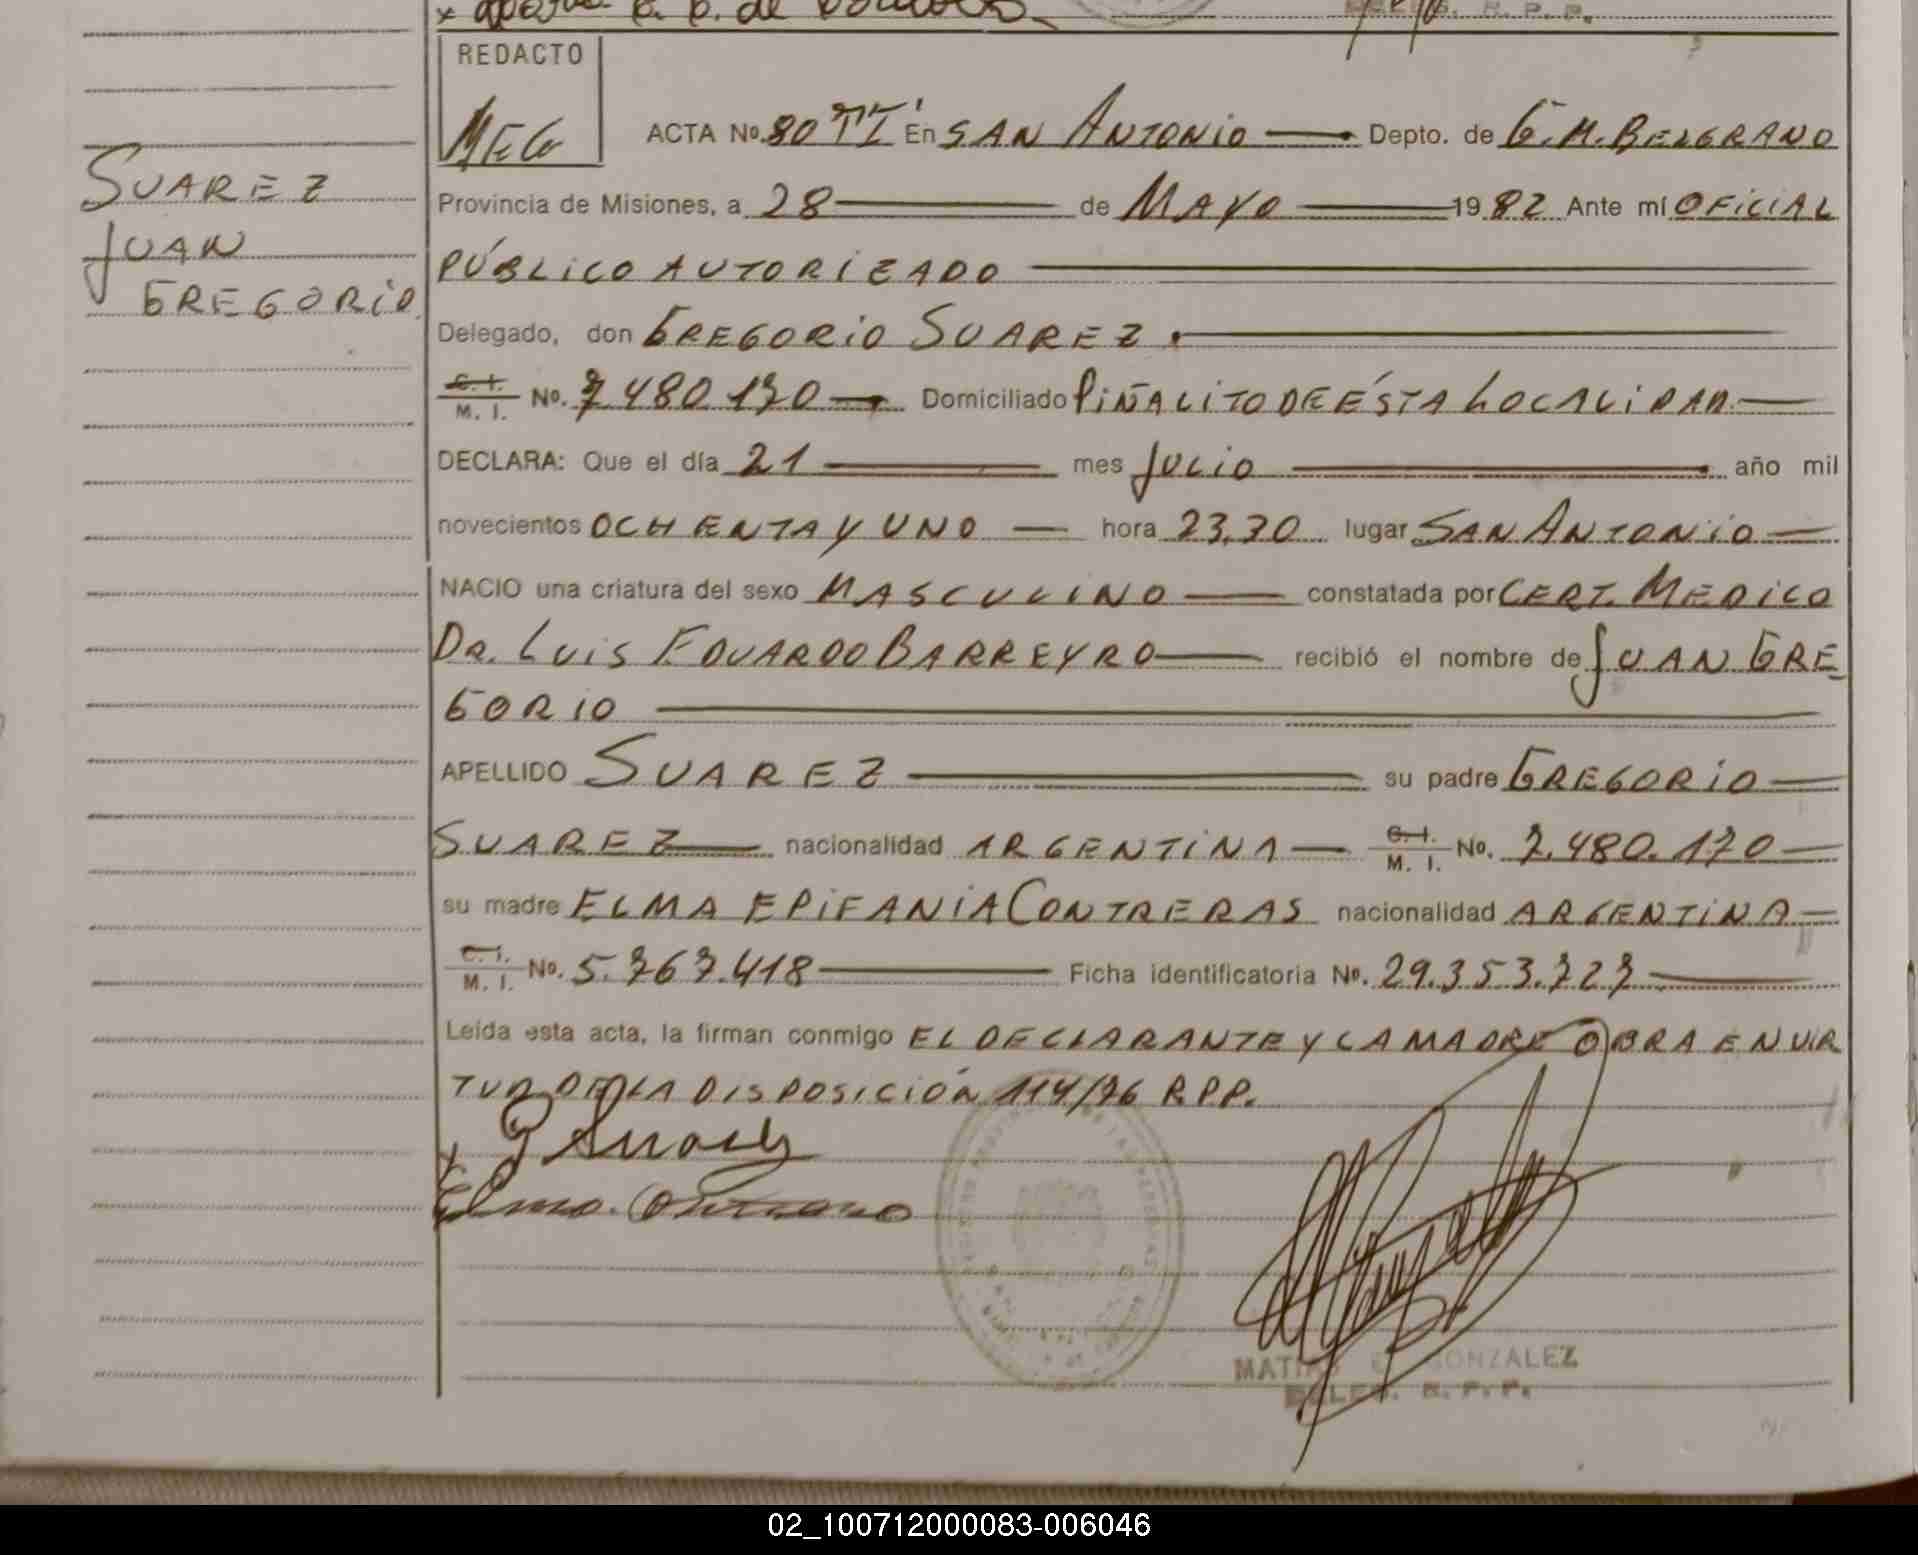 SUAREZ
JUAN
GREGORIO
REDACTO
MEG
ACTA No. 80 TI En SAN ANTONIO Depto. de G.M. BELGRANO
Provincia de Misiones, a 28 de MAYO 1982 Ante mí OFICIAL
PÚBLICO AUTORIZADO
Delegado, don GREGORIO SUAREZ.
C.I. / M. I. No. 7.480.170 Domiciliado PIÑALITO DE ÉSTA LOCALIDAD
DECLARA: Que el día 21 mes JULIO año mil
novecientos OCHENTA Y UNO hora 23,30 lugar SAN ANTONIO
NACIO una criatura del sexo MASCULINO constatada por CERT. MEDICO
DR. LUIS EDUARDO BARREYRO recibió el nombre de JUAN GRE
GORIO
APELLIDO SUAREZ su padre GREGORIO
SUAREZ nacionalidad ARGENTINA C.I. / M. I. No. 7.480.170
su madre ELMA EPIFANIA CONTRERAS nacionalidad ARGENTINA
C.I. / M. I. No. 5.767.418 Ficha identificatoria No. 29.353.727
Leída esta acta, la firman conmigo EL DECLARANTE Y LA MADRE OBRA EN VIR
TUD DE LA DISPOSICIÓN 114/76 R.P.P.
MATIAS E. GONZALEZ
R. P. P.
02_100712000083-006046